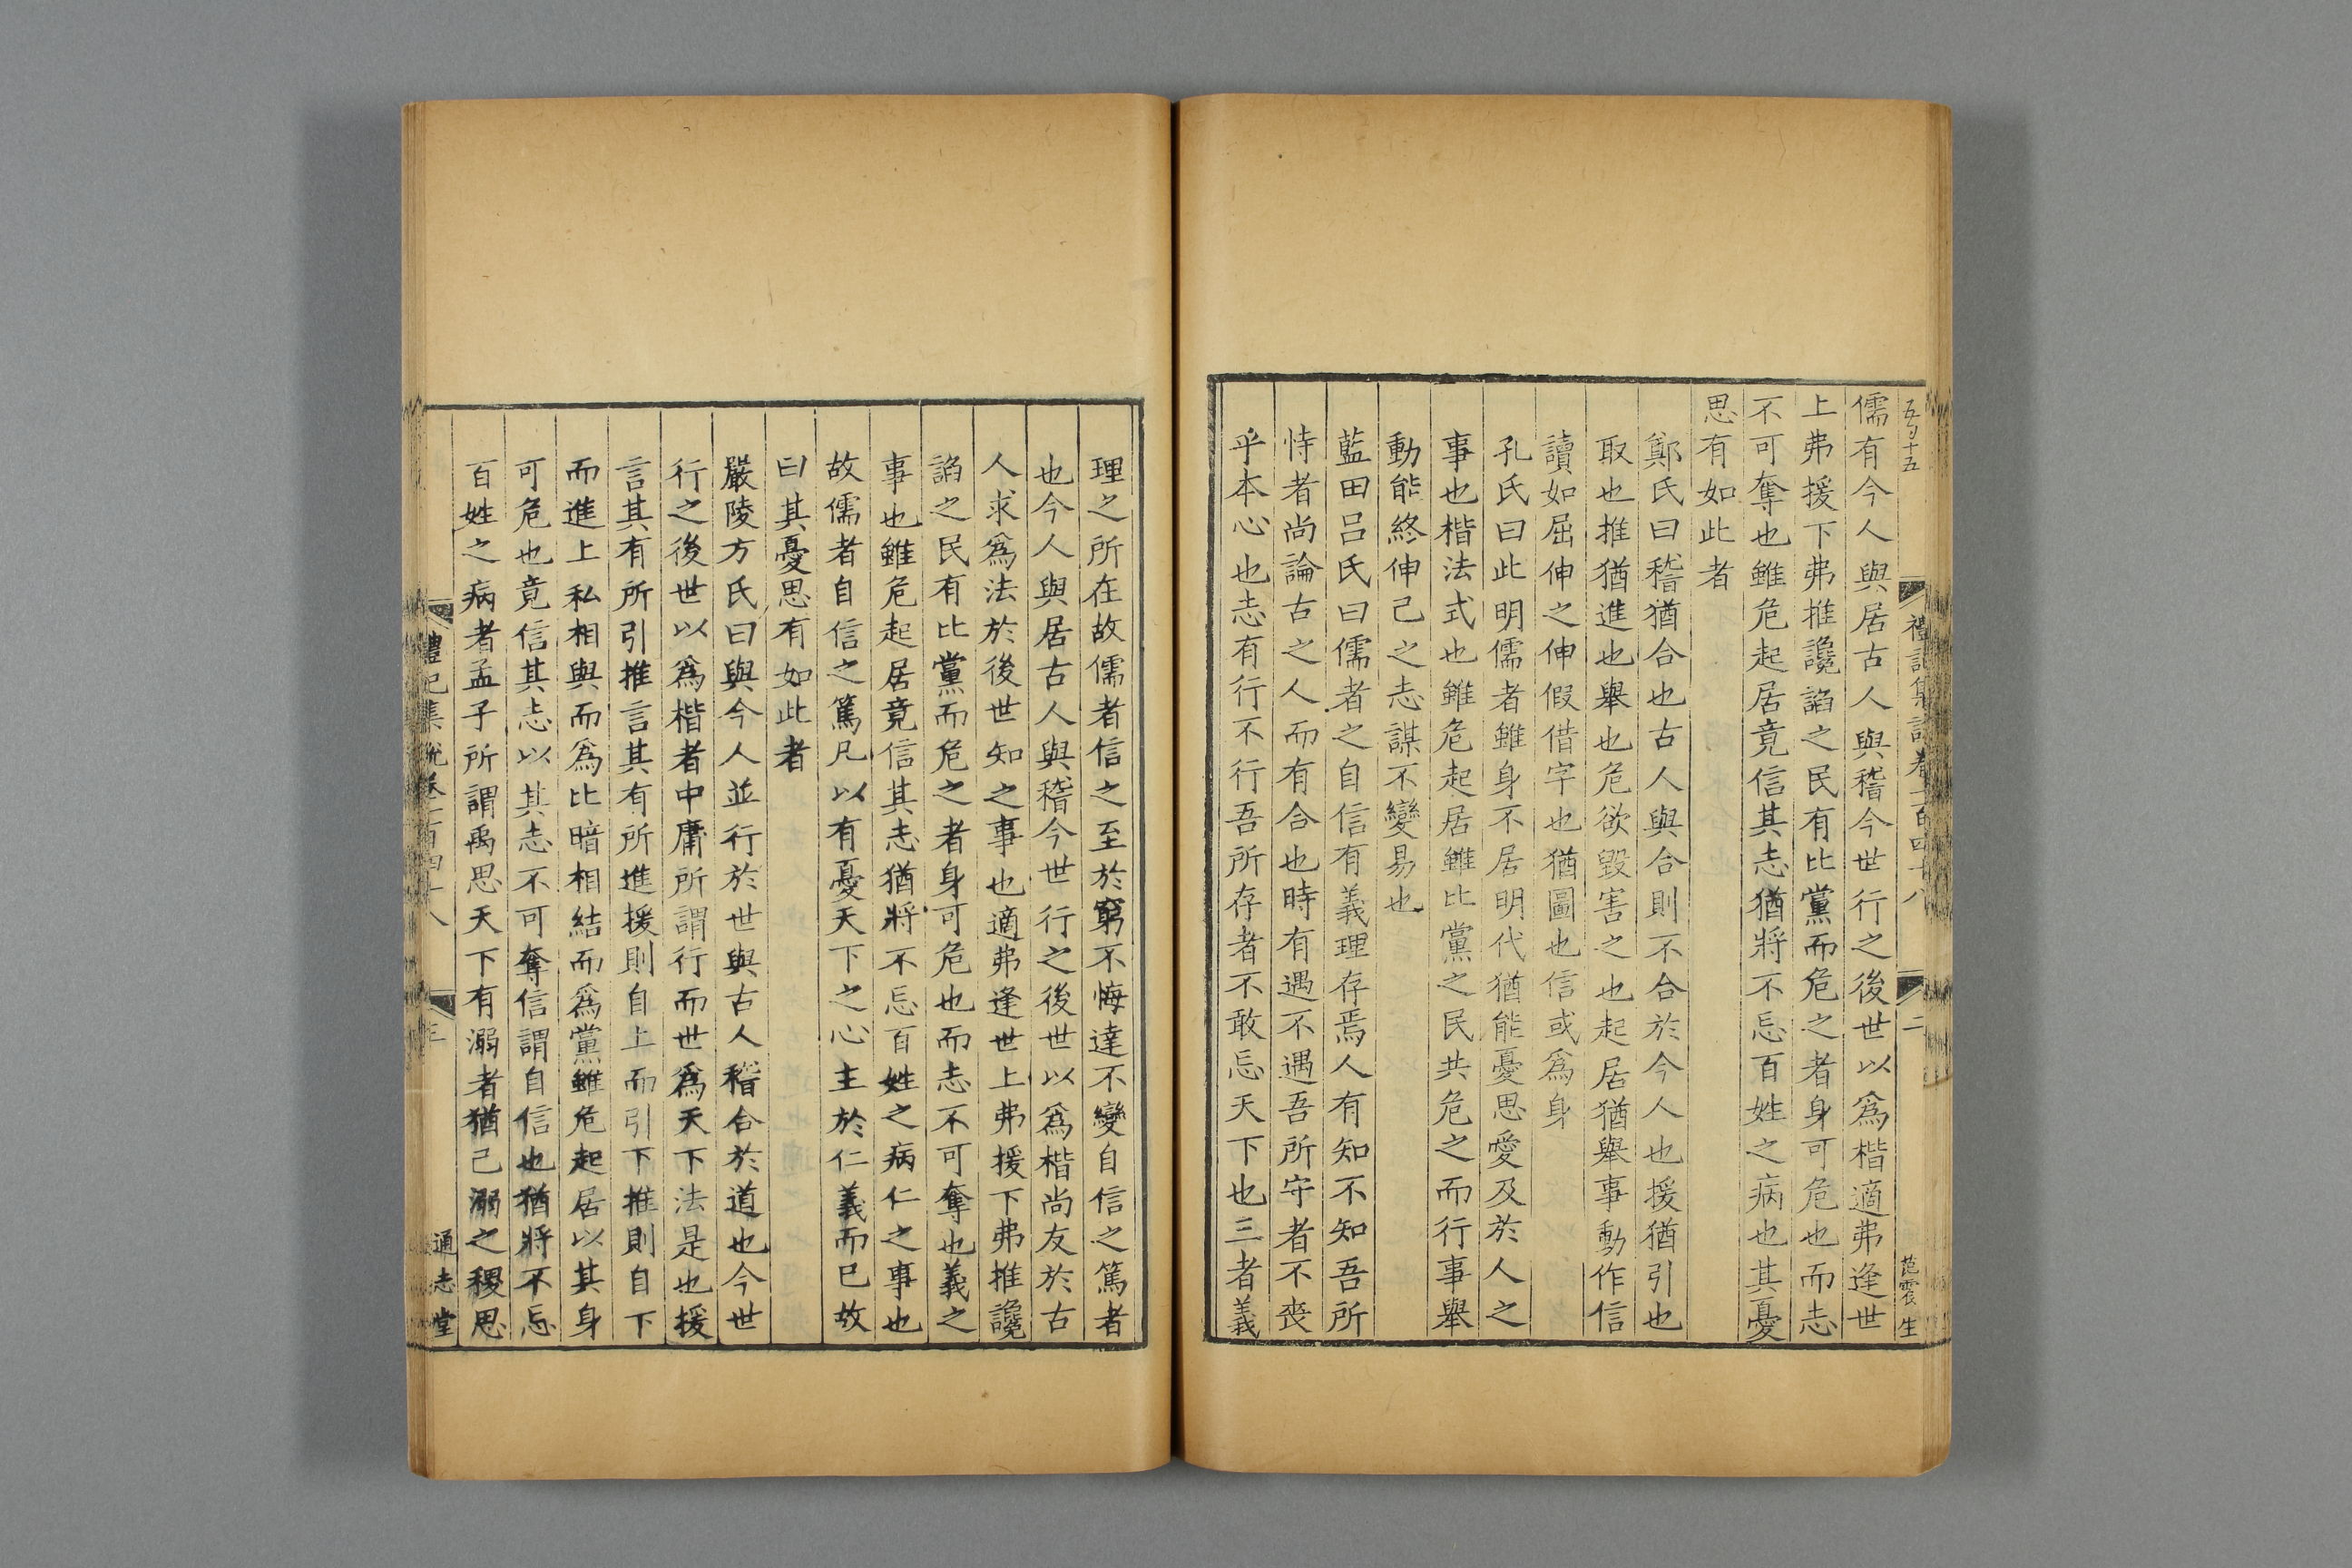 儒有今人與居古人與稽今世行之後世以爲楷適弗逢世
上弗援下弗推讒諂之民有比黨而危之者身可危也而志
不可奪也雖危起居竟信其志猶將不忘百姓之病也其憂
思有如此者
鄭氏曰稽猶合也古人與合則不合於今人也援猶引也
取也推猶進也舉也危欲毀害之也起居猶舉事動作信
讀如屈伸之伸假借字也猶圖也信或爲身
孔氏曰此明儒者雖身不居明代猶能憂思愛及於人之
事也楷法式也雖危起居雖比黨之民共危之而行事舉
動能終伸己之志謀不變易也
藍田呂氏曰儒者之自信有義理存焉人有知不知吾所
恃者尚論古之人而有合也時有遇不遇吾所守者不喪
乎本心也志有行不行吾所存者不敢忘天下也三者義
理之所在故儒者信之至於窮不悔達不變自信之篤者
也今人與居古人與稽今世行之後世以爲楷尚友於古
人求爲法於後世知之事也適弗逢世上弗援下弗推讒
諂之民有比黨而危之者身可危也而志不可奪也義之
事也雖危起居竟信其志猶將不忘百姓之病仁之事也
故儒者自信之篤凡以有憂天下之心主於仁義而已故
曰其憂思有如此者
嚴陵方氏曰與今人並行於世與古人稽合於道也今世
行之後世以爲楷者中庸所謂行而世爲天下法是也援
言其有所引推言其有所進援則自上而引下推則自下
而進上私相與而爲比暗相結而爲黨雖危起居以其身
可危也竟信其志以其志不可奪信謂自信也猶將不忘
百姓之病者孟子所謂禹思天下有溺者猶己溺之稷思
禮記集說卷一百四十八
三
通志堂
禮記集說卷一百四十八
二
范震生